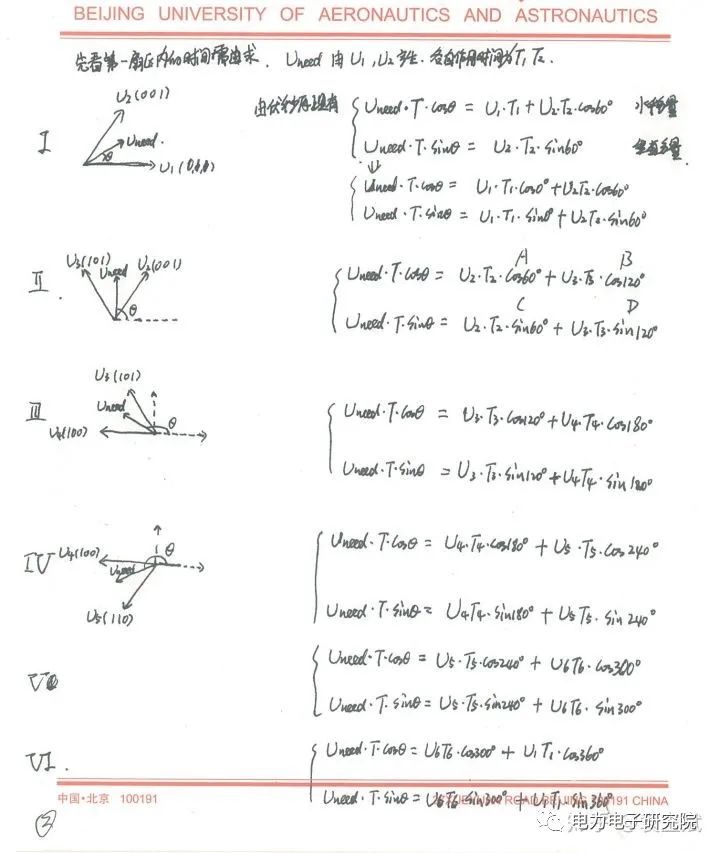 BEIJING UNIVERSITY OF AERONAUTICS AND ASTRONAUTICS
先看第一扇区内的时间需由求. Uneed 由 U1, U2 产生. 各自作用时间为 T1 T2.
由伏秒原理有
Uneed·T·cosθ = U1·T1 + U2·T2·cos60° 水平分量
Uneed·T·sinθ = U2·T2·sin60° 垂直分量
⇓
I
U2(001)
Uneed.
θ
U1
Uneed·T·cosθ = U1·T1·cos0° + U2T2·cos60°
Uneed·T·sinθ = U1·T1·sin0° + U2T2·sin60°
II.
U3(101)
Uneed
U2(001)
θ
A B
Uneed·T·cosθ = U2·T2·cos60° + U3·T3·cos120°
C D
Uneed·T·sinθ = U2·T2·sin60° + U3·T3·sin120°
III
U3(101)
Uneed
θ
U4(100)
Uneed·T·cosθ = U3·T3·cos120° + U4·T4·cos180°
Uneed·T·sinθ = U3·T3·sin120° + U4T4·sin180°
IV
U4(100)
θ
Uneed
U5(110)
Uneed·T·cosθ = U4·T4·cos180° + U5·T5·cos240°
Uneed·T·sinθ = U4T4·sin180° + U5T5·sin240°
V
Uneed·T·cosθ = U5·T5·cos240° + U6T6·cos300°
Uneed·T·sinθ = U5·T5·sin240° + U6T6·sin300°
VI.
Uneed·T·cosθ = U6T6·cos300° + U1T1·cos360°
中国·北京 100191
Uneed·T·sinθ = U6T6·sin300° + U1T1·sin360°
ROAD BEIJING 100191 CHINA
②
电力电子研究院